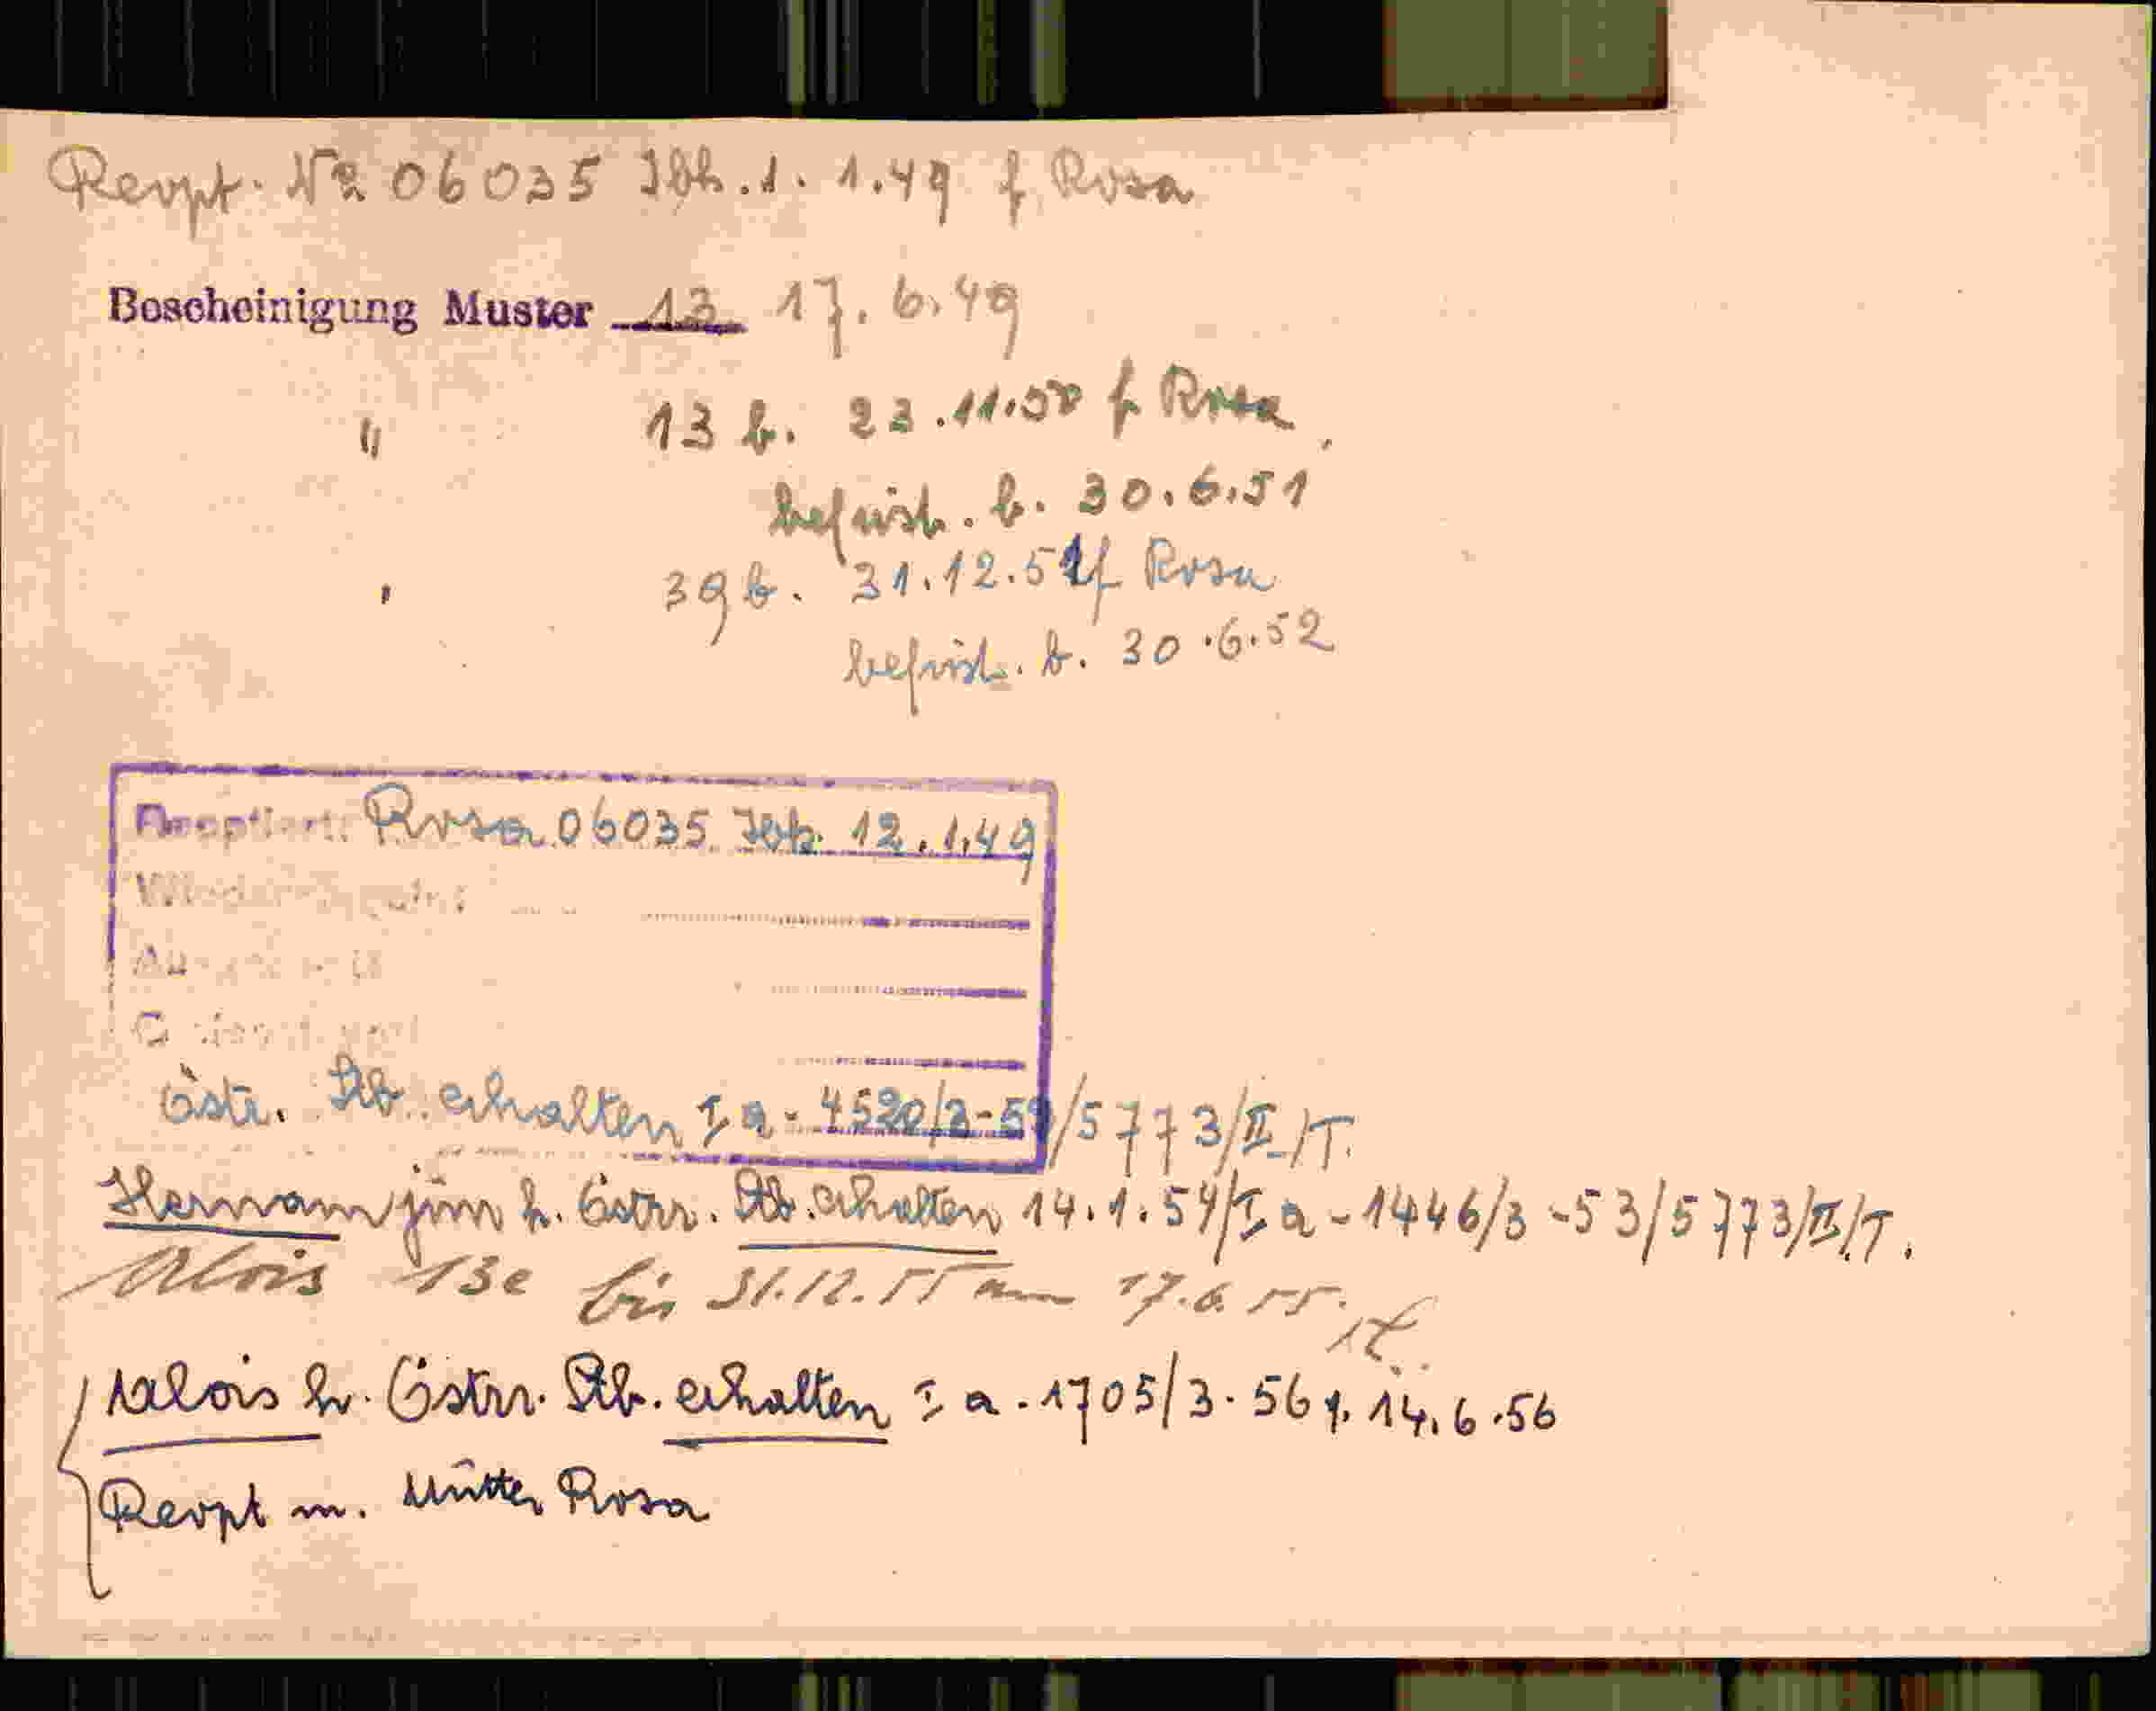 Reopt. No 06035 Ibk. 1. 1.49 f Rosa
Bescheinigung Muster 13 17. 6.49
" 13 b. 23.11.50 f Rosa
befrist. b. 30.6.51
" 39 b. 31.12.51 f Rosa
befrist. b. 30.6.52
Reoptiert: Rosa 06035 Ibk. 12.1.49
Östr. Stb. erhalten I a - 4520/3-51/5773/II/T.
Hermann jun h. Östrr. Stb. erhalten 14.1.54/I a - 1446/3-53/5773/II/T.
Alois 13e bis 31.12.55 am 17.6.55.
Alois h. Östrr. Stb. erhalten I a - 1705/3-56 v. 14.6.56
Reopt m. Mutter Rosa